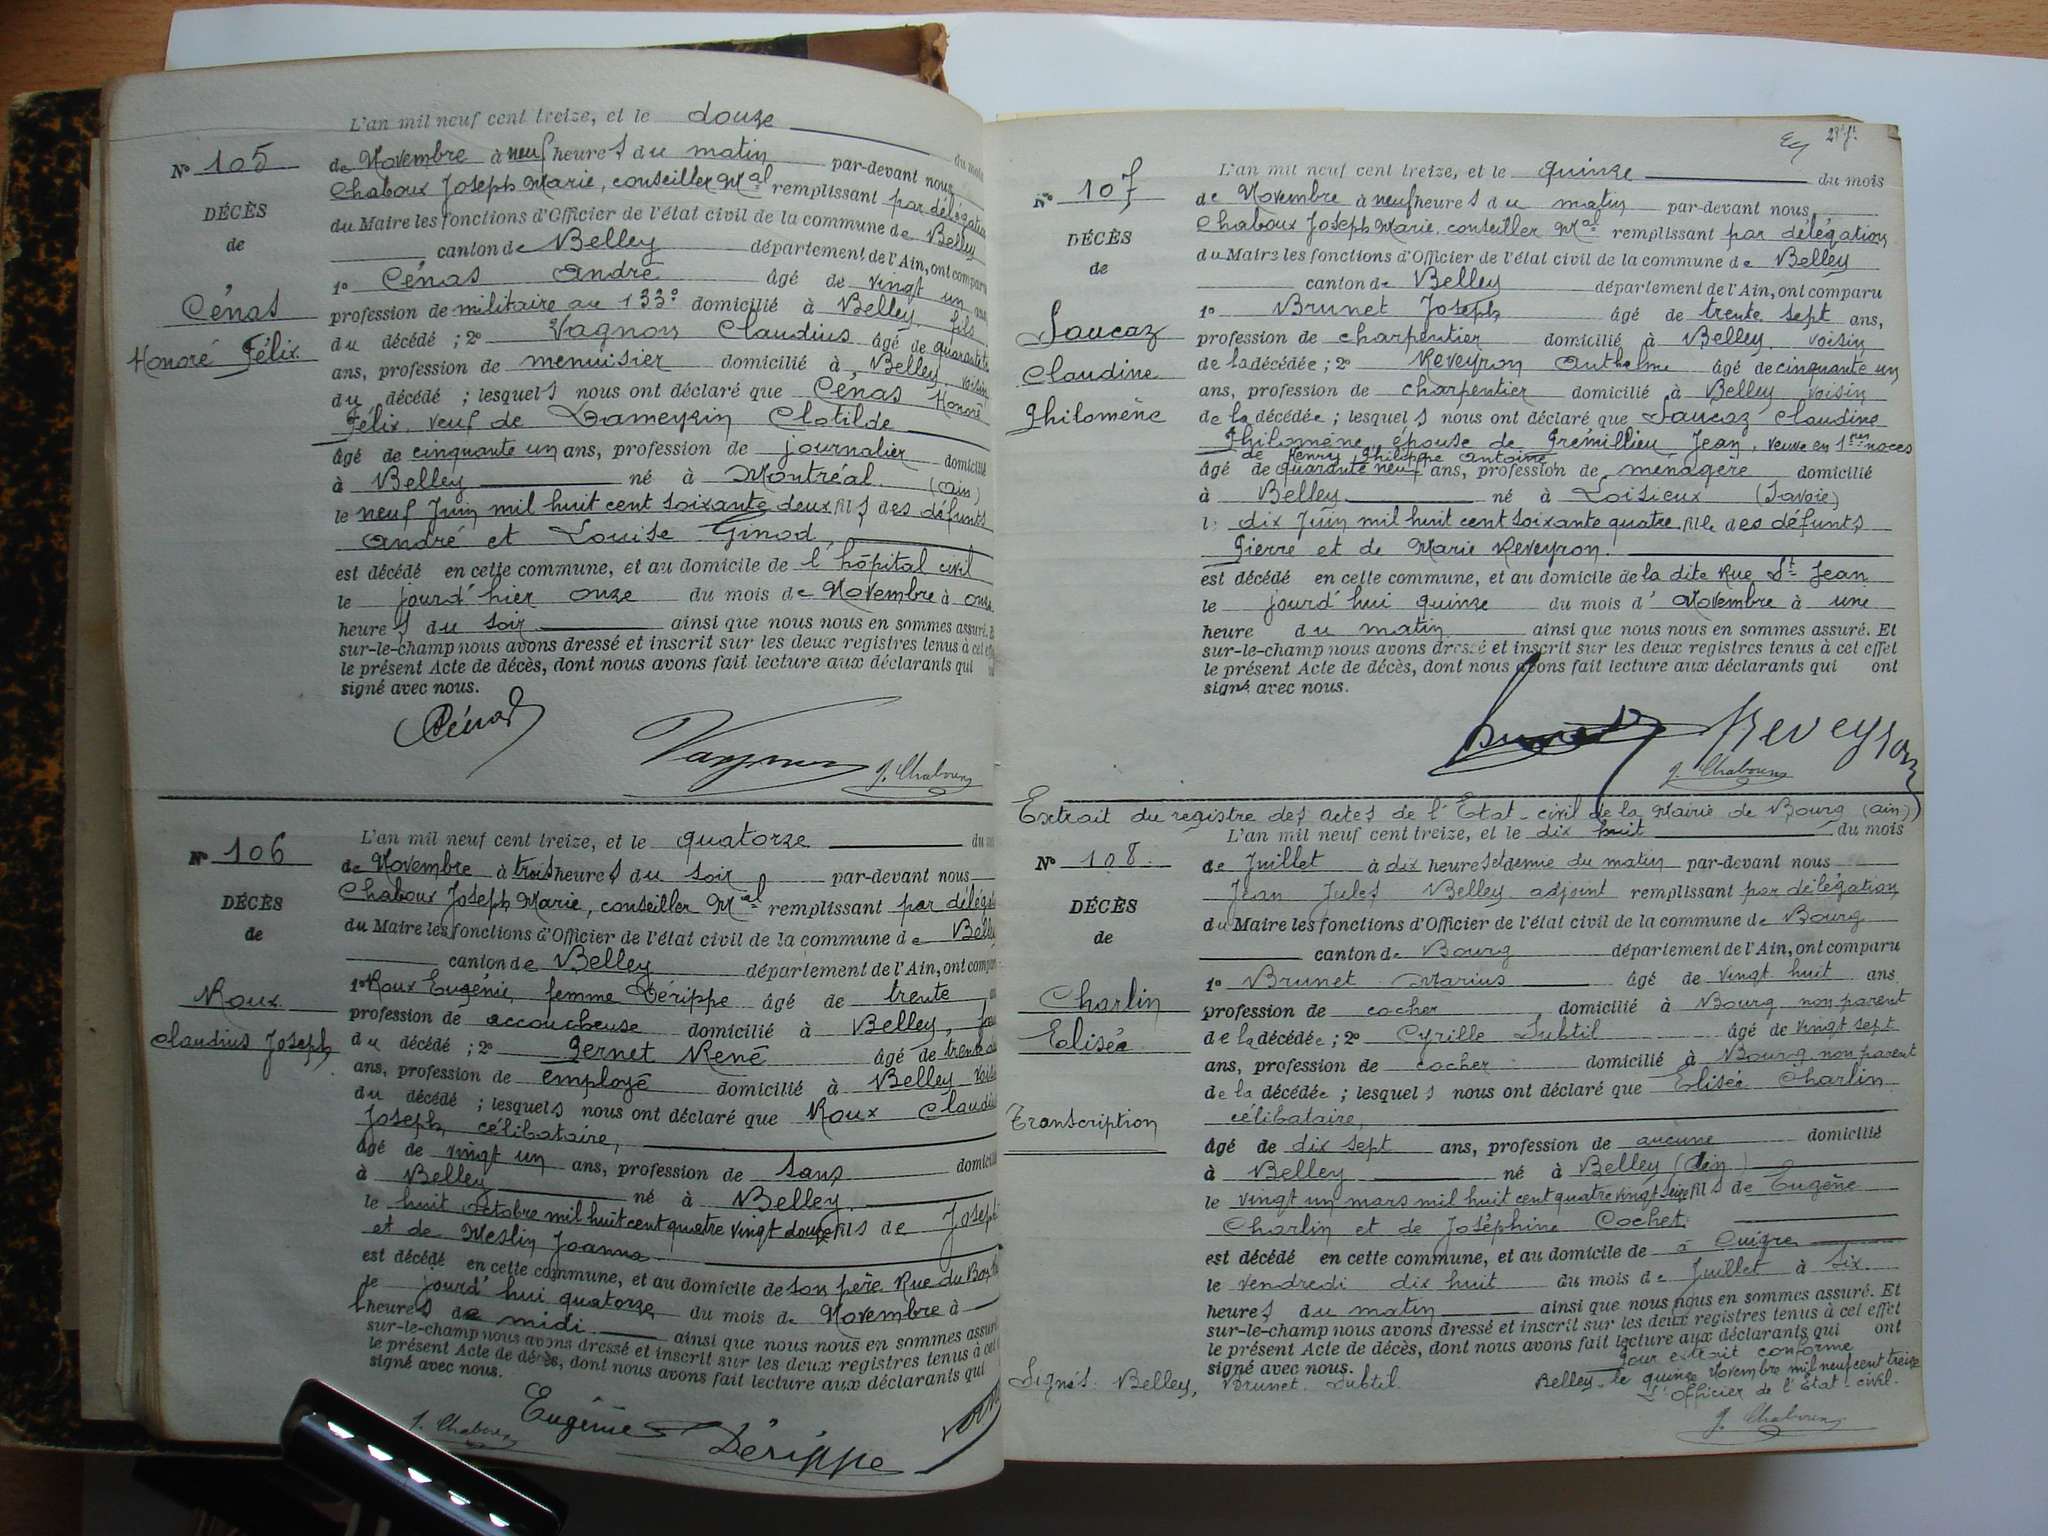 L'an mil neuf cent treize, et le douze du mois
Nº 105
de Novembre à neuf heures du matin par-devant nous
Chaboux Joseph Marie, conseiller Mal remplissant par délégation
DÉCÈS
du Maire les fonctions d'Officier de l'état civil de la commune de Belley
de
canton de Belley département de l'Ain, ont comparu
1º Cénas André âgé de vingt un ans
Cénas
profession de militaire au 133e domicilié à Belley fils
Honoré Félix
du décédé ; 2º Vagnon Claudius âgé de quarante
ans, profession de menuisier domicilié à Belley, voisin
du décédé ; lesquels nous ont déclaré que Cénas Honoré
Félix, veuf de Clotilde
âgé de cinquante un ans, profession de journalier domicilié
à Belley né à Montréal (ain)
le neuf Juin mil huit cent soixante deux fils des défunts
André et Louise Ginod,
est décédé en cette commune, et au domicile de l'hôpital civil
le jourd'hier onze du mois de Novembre à onze
heures du soir ainsi que nous nous en sommes assuré. E
sur-le-champ nous avons dressé et inscrit sur les deux registres tenus à cet ef
le présent Acte de décès, dont nous avons fait lecture aux déclarants qui
signé avec nous.
Cénas
Vagnon J. Chaboux
L'an mil neuf cent treize, et le quatorze du m
Nº 106
de Novembre à trois heures du soir par-devant nous
Chaboux Joseph Marie, conseiller Mal remplissant par délég
DÉCÈS
du Maire les fonctions d'Officier de l'état civil de la commune de Bell
de
canton de Belley département de l'Ain, ont compar
1º Roux Eugénie, femme Dérippe âgé de trente
Roux
profession de accoucheuse domicilié à Belley,
Claudius Joseph
du décédé ; 2º Pernet René âgé de trente
ans, profession de employé domicilié à Belley vois
du décédé ; lesquels nous ont déclaré que Roux Claudiu
Joseph, célibataire,
âgé de vingt un ans, profession de sans domicili
à Belley né à Belley
le huit octobre mil huit cent quatre vingt douze fils de Joseph
et de Meslin Joanna
est décédé en cette commune, et au domicile de son père Rue du
le jourd'hui quatorze du mois de Novembre à
heures de midi ainsi que nous nous en sommes assuré
sur-le-champ nous avons dressé et inscrit sur les deux registres tenus à cet
le présent Acte de décès, dont nous avons fait lecture aux déclarants qui
signé avec nous.
J. Chaboux Eugénie Dérippe
L'an mil neuf cent treize, et le quinze du mois
Nº 107
de Novembre à neuf heures du matin par-devant nous
Chaboux Joseph Marie, conseiller Mal remplissant par délégation
DÉCÈS
du Maire les fonctions d'Officier de l'état civil de la commune de Belley
de
canton de Belley département de l'Ain, ont comparu
1º Brunet Joseph âgé de trente sept ans,
Saucaz
profession de charpentier domicilié à Belley voisin
Claudine
de la décédée ; 2º Reveyron Anthelme âgé de cinquante un
ans, profession de charpentier domicilié à Belley voisin
Philomène
de la décédée ; lesquels nous ont déclaré que Saucaz Claudine
Philomène, épouse de Grémillieu Jean, veuve en 1eres noces
de Philippe Antoine
âgé de quarante neuf ans, profession de ménagère domicilié
à Belley né à Loisieux (Savoie)
le dix Juin mil huit cent soixante quatre fille des défunts
Pierre et de Marie Reveyron.
est décédé en cette commune, et au domicile de la dite Rue St Jean
le jourd'hui quinze du mois d' Novembre à une
heure du matin ainsi que nous nous en sommes assuré. Et
sur-le-champ nous avons dressé et inscrit sur les deux registres tenus à cet effet
le présent Acte de décès, dont nous avons fait lecture aux déclarants qui ont
signé avec nous.
Brunet Reveyron
J. Chaboux
Extrait du registre des actes de l'Etat-civil de la Mairie de Bourg (ain)
L'an mil neuf cent treize, et le dix huit du mois
Nº 108
de Juillet à dix heures et demie du matin par-devant nous
Jean Jules Belley adjoint remplissant par délégation
DÉCÈS
du Maire les fonctions d'Officier de l'état civil de la commune de Bourg
de
canton de Bourg département de l'Ain, ont comparu
1º Brunet Marius âgé de vingt huit ans
Charlin
profession de cocher domicilié à Bourg non parent
Elisée
de la décédée ; 2º Cyrille Subtil âgé de vingt sept
ans, profession de cocher domicilié à Bourg non parent
de la décédée ; lesquels nous ont déclaré que Elisée Charlin
Transcription
célibataire,
âgé de dix sept ans, profession de aucune domicilié
à Belley né à Belley (Ain)
le vingt un mars mil huit cent quatre vingt seize fils de Eugène
Charlin et de Joséphine Cochet
est décédé en cette commune, et au domicile de à Cuègre
le vendredi dix huit du mois de Juillet à six
heures du matin ainsi que nous nous en sommes assuré. Et
sur-le-champ nous avons dressé et inscrit sur les deux registres tenus à cet effet
le présent Acte de décès, dont nous avons fait lecture aux déclarants qui ont
signé avec nous.
Pour extrait conforme
Signés: Belley, Brunet. Subtil.
Belley, le quinze Novembre mil neuf cent treize
L'Officier de l'Etat-civil.
J. Chaboux